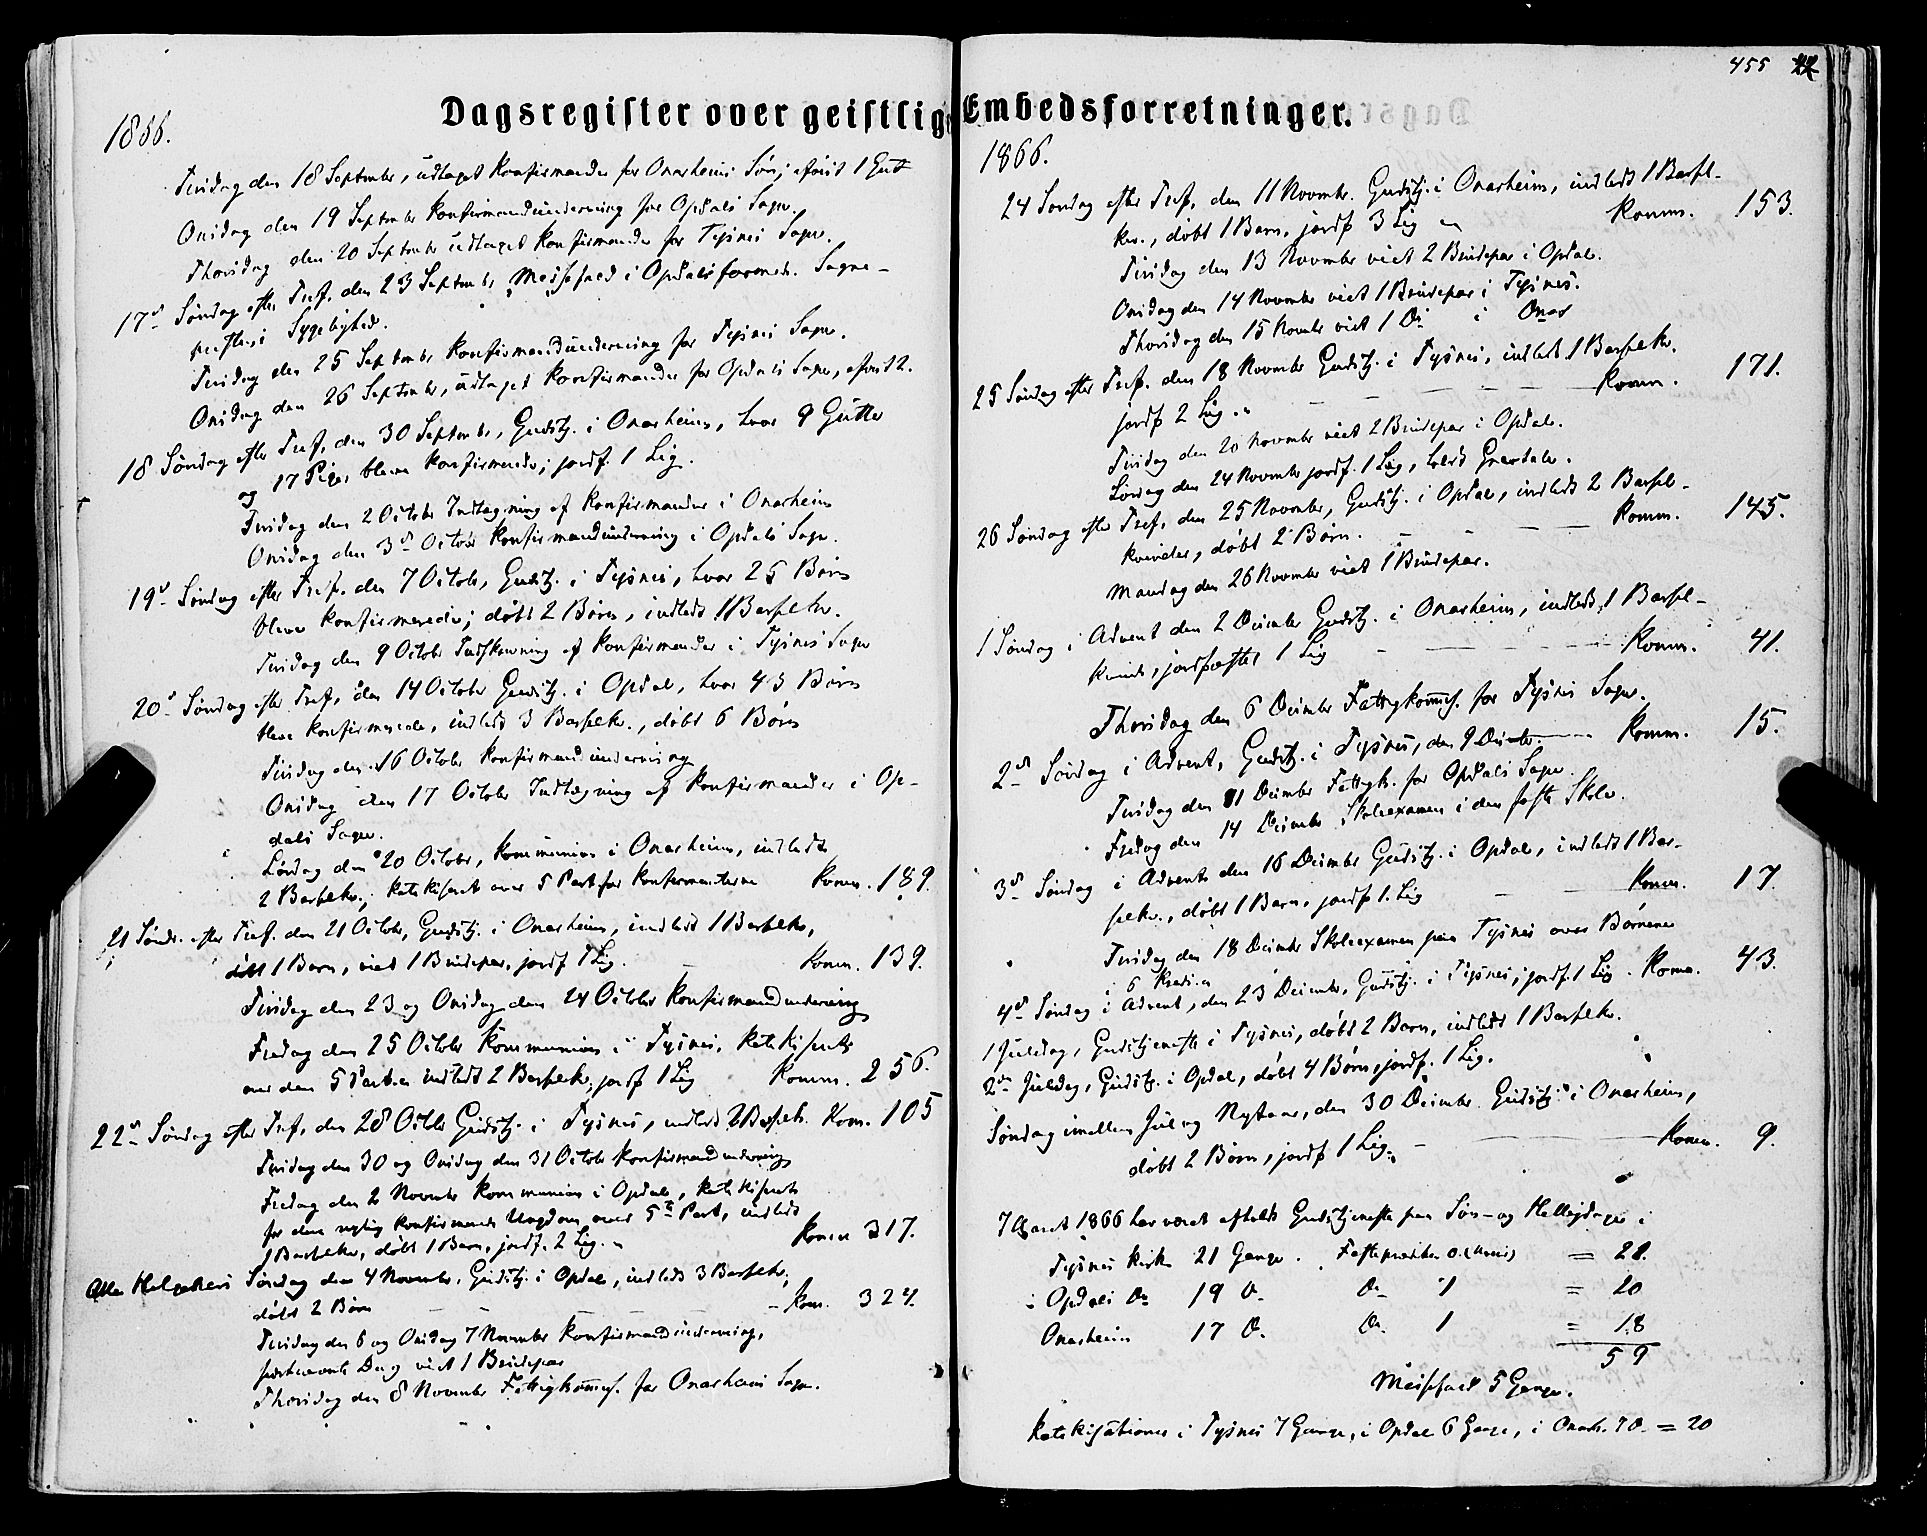 455
Dagsregister over geistlige Embedsforretninger.
1866.
Tirsdag den 18 September, udtaget Konfirmander for Onarheims Sogn; afviist 1 Gut
Onsdag den 19 September Konfirmandunderviisning for Opdals Sogn.
Thorsdag den 20 September udtaget Konfirmander for Tysnes Sogn.
17de Søndag efter Tref. den 23 September, Messefald i Opdal formed. Sogne-
præstens Sygelighed.
Tirsdag den 25 September Konfirmandunderviisning for Tysnes Sogn.
Onsdag den 26 September, udtaget Konfirmander for Opdals Sogn, afviist 2.
18 Søndag efter Tref. den 30 September, Gudstj. i Onarheim, hvor 9 Gutter
og 17 Piger bleve konfirmerede; jordf. 1 Lig.
Tirsdag den 2 October Indtagning af Konfirmander i Onarheim
Onsdag den 3de October Konfirmandunderviisning i Opdals Sogn.
19de Søndag efter Tref. den 7 October, Gudstj. i Tysnes, hvor 25 Børn
bleve konfirmerede; døbt 2 Børn, indledt 1 Barselkv.
Tirsdag den 9 October Indskrivning af Konfirmander i Tysnes Sogn
20de Søndag efter Tref. den 14 October Gudstj. i Opdal, hvor 43 Børn
bleve konfirmerede, indledt 3 Barselkv., døbt 6 Børn
Tirsdag den 16 October Konfirmandunderviisning
Onsdag den 17 October Indtagning af Konfirmander i Op-
dals Sogn.
Lørdag den 20 October, Kommunion i Onarheim, indledt
2 Barselkv.; Katekiseret over 5 Part for Konfirmanterne Komm. 189.
21 Sønd. efter Tref. den 21 October, Gudstj. i Onarheim, indledt 1 Barselkv.,
døbt 1 Barn, viet 1 Brudepar, jordf 1 Lig. Komm. 139.
Tirsdag den 23 og Onsdag den 24 October Konfirmandunderviisning
Fredag den 25 October Kommunion i Tysnes, Katekiseret
over den 5 Part. indledt 2 Barselkv., jordf 1 Lig Komm. 256.
22de Søndag efter Tref. den 28 Octbr Gudstj. i Tysnes, indledt 2 Barselk. Kom. 105
Tirsdag den 30 og Onsdag den 31 October Konfirmandunderviisning
Fredag den 2 November Kommunion i Opdal, Katekiseret
for den nylig konfirmerede Ungdom over 5te Part, indledt
1 Barselkv., døbt 1 Barn, jordf. 2 Lig. Komm 317.
Alle Helgeners Søndag den 4 November, Gudstj. i Opdal, indledt 3 Barselkv.,
døbt 2 Børn Kom. 324.
Tirsdag den 6 og Onsdag 7 November Konfirmandunderviisning,
sidstnævnte Dag viet 1 Brudepar
Thorsdag den 8 November Fattigkommis. for Onarheims Sogn.
1866.
24 Søndag efter Tref. den 11 Novembr. Gudstj. i Onarheim, indledt 1 Barsel-
kv., døbt 1 Barn, jordf 3 Lig Komm. 153.
Tirsdag den 13 November viet 2 Brudepar i Opdal.
Onsdag den 14 November viet 1 Brudepar i Tysnes.
Thorsdag den 15 Novembr viet 1 Do i Onar
25 Søndag efter Tref. den 18 November Gudstj. i Tysnes, indledt 1 Barselkv.
jordf 2 Lig. Komm. 171.
Tirsdag den 20 November viet 2 Brudepar i Opdal.
Lørdag den 24 November jordf. 1 Lig, holdt Gravtale.
26 Søndag efter Tref. den 25 November, Gudstj. i Opdal, indledt 2 Barsel-
kvinder, døbt 2 Børn. Komm. 145.
Mandag den 26 November viet 1 Brudepar.
1 Søndag i Advent den 2 December Gudstj. i Onarheim, indledt 1 Barsel-
kvinde, jordfæstet 1 Lig Komm. 41.
Thorsdag den 6 December Fattigkommis. for Tysnes Sogn.
2de Søndag i Advent, Gudstj. i Tysnes, den 9 Decembr. Komm. 15.
Tirsdag den 11 December Fattigk. for Opdals Sogn
Fredag den 14 December Skoleexamen i den faste Skole.
3de Søndag i Advent den 16 December Gudstj. i Opdal, indledt 1 Bar-
selkv., døbt 1 Barn, jordf 1. Lig Komm. 17.
Tirsdag den 18 December Skoleexamen paa Tysnes over Børnene
i 6 Kredse
4de Søndag i Advent, den 23 December, Gudstj. i Tysnes, jordf. 1 Lig. Komm. 43.
1 Juledag, Gudstjeneste i Tysnes, døbt 2 Barn, indledt 1 Barselkv.
2den Juledag, Gudstj. i Opdal, døbt 4 Børn, jordf. 1 Lig.
Søndag imellem Jul og Nytaar, den 30 December Gudstj. i Onarheim,
døbt 2 Børn, jordf 1 Lig. Komm. 9.
I Aaret 1866 har været afholdt Gudstjeneste paa Søn- og Helligdage i
Tysnes Kirke 21 Gange. Fasteprædiken 0. = 21.
i Opdals Do 19 D. Do 1 = 20
Onarheim 17 D. Do. 1 = 18
59
Messefald 5 Gange.
Katekisationer i Tysnes 7 Gange, i Opdal 6 Gange, i Onarh. 7 D. = 20